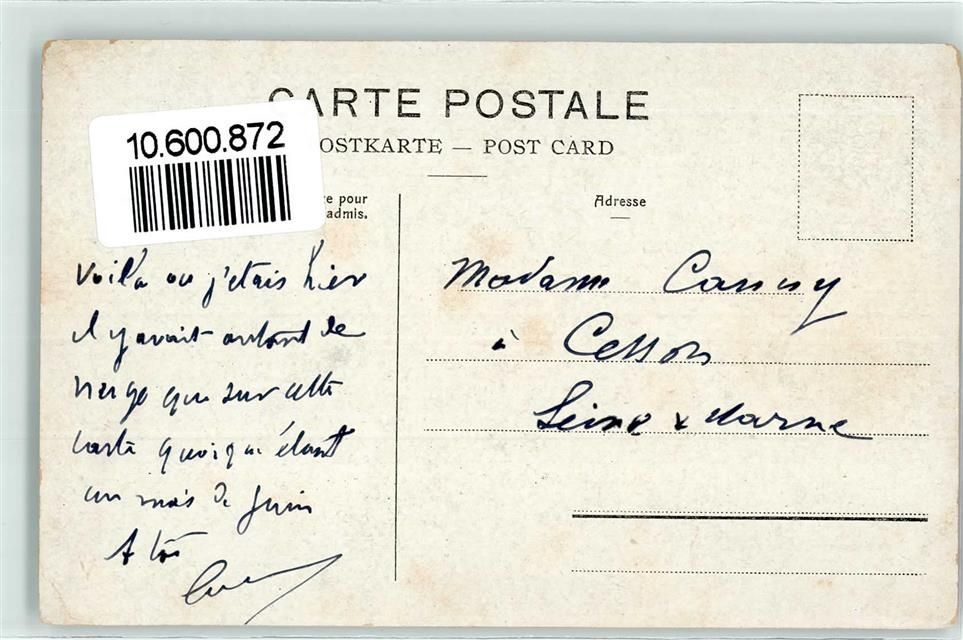 CARTE POSTALE
10.600.872
OSTKARTE — POST CARD
e pour
admis.
Adresse
Voilà ou j'etais hier
il y avait autant de
neige que sur cette
carte quoique étant
au mois de Juin
A toi
Madame Canuy
à Cesson
Seine & Marne